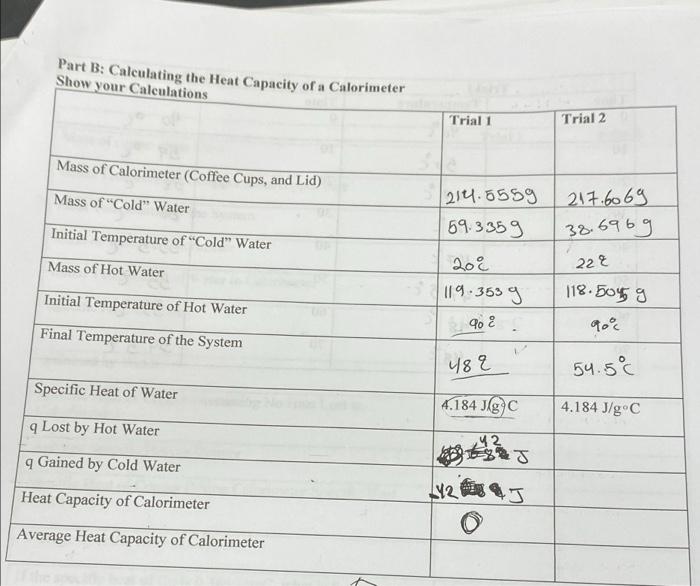 Part B: Calculating the Heat Capacity of a Calorimeter
Show your Calculations
Trial 1 Trial 2
Mass of Calorimeter (Coffee Cups, and Lid) 214.555g 217.606g
Mass of “Cold” Water 59.335g 38.696g
Initial Temperature of “Cold” Water 20°C 22°C
Mass of Hot Water 119.353 g g
Initial Temperature of Hot Water 90°C 90°C
Final Temperature of the System 48°C 54.5°C
Specific Heat of Water 4.184 J/g°C 4.184 J/g°C
q Lost by Hot Water 42 J
q Gained by Cold Water J
Heat Capacity of Calorimeter 0
Average Heat Capacity of Calorimeter